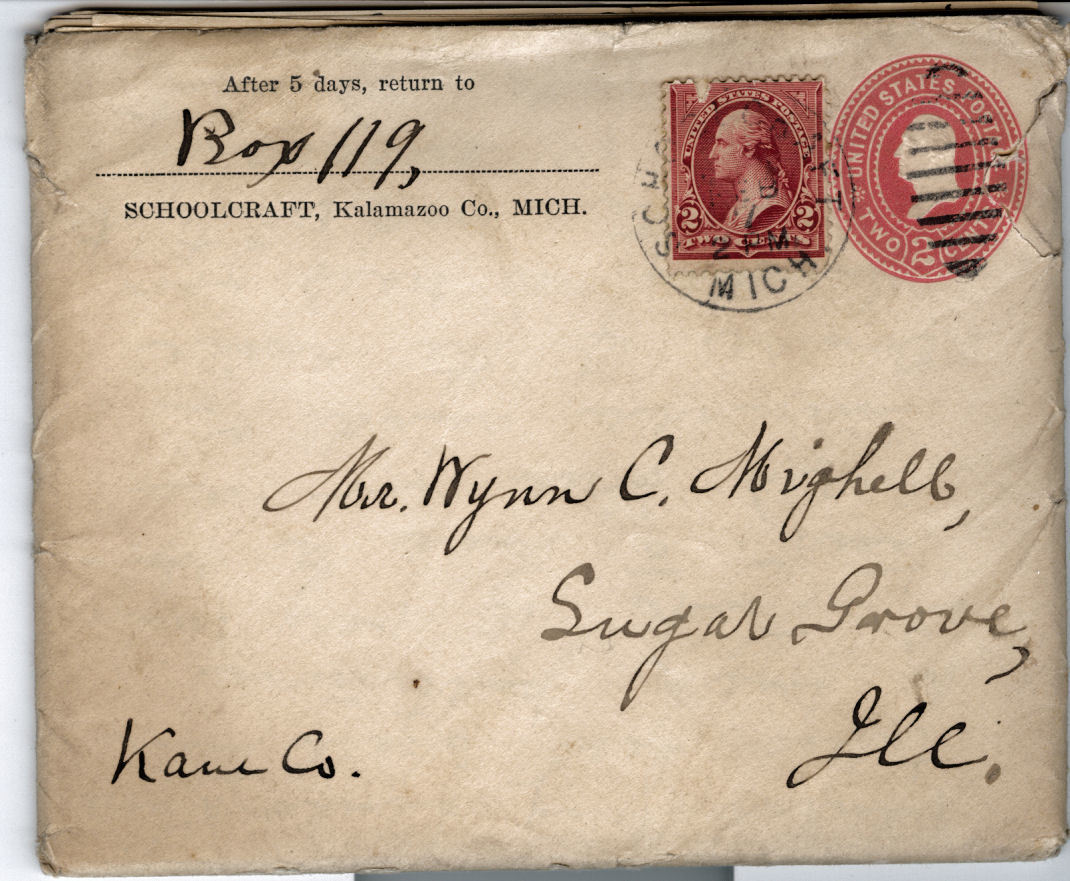 After 5 days, return to
Box 119,
SCHOOLCRAFT, Kalamazoo Co., MICH.
UNITED STATES POSTAGE
2 2
TWO CENTS
MICH.
UNITED STATES POSTAGE
TWO 2 CENTS
Mr. Wynn C. Mighell,
Sugar Grove,
Kane Co.
Ill.